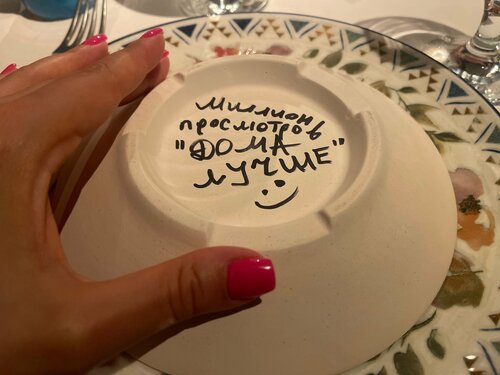 Миллион
просмотров
"ДОМА
ЛУЧШЕ"